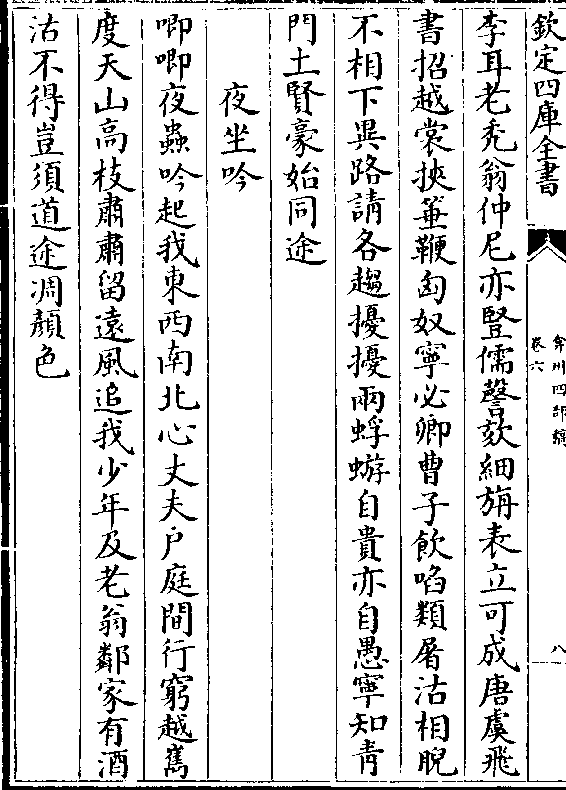 欽定四庫全書
弇州四部稿
卷六
八
李耳老禿翁仲尼亦豎儒謦欬細旃表立可成唐虞飛
書招越裳挾箠鞭匈奴寧必卿曹子飲啗類屠沽相睨
不相下異路請各趨擾擾兩蜉蝣自貴亦自愚寧知青
門土賢豪始同途
夜坐吟
唧唧夜蟲吟起我東西南北心丈夫戶庭間行窮越嶲
度天山高枝肅肅留遠風追我少年及老翁鄰家有酒
沽不得豈須道途凋顏色